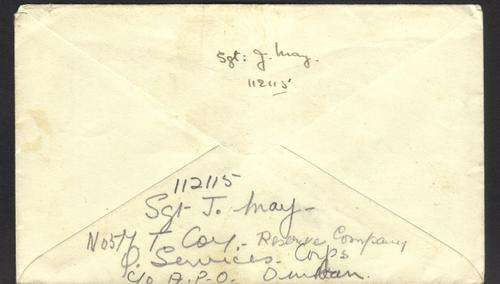 Sgt: J. May.
112115
112115
Sgt J. May
T Coy. Reserve Company
Q. Services Corps
c/o A.P.O. Durban.